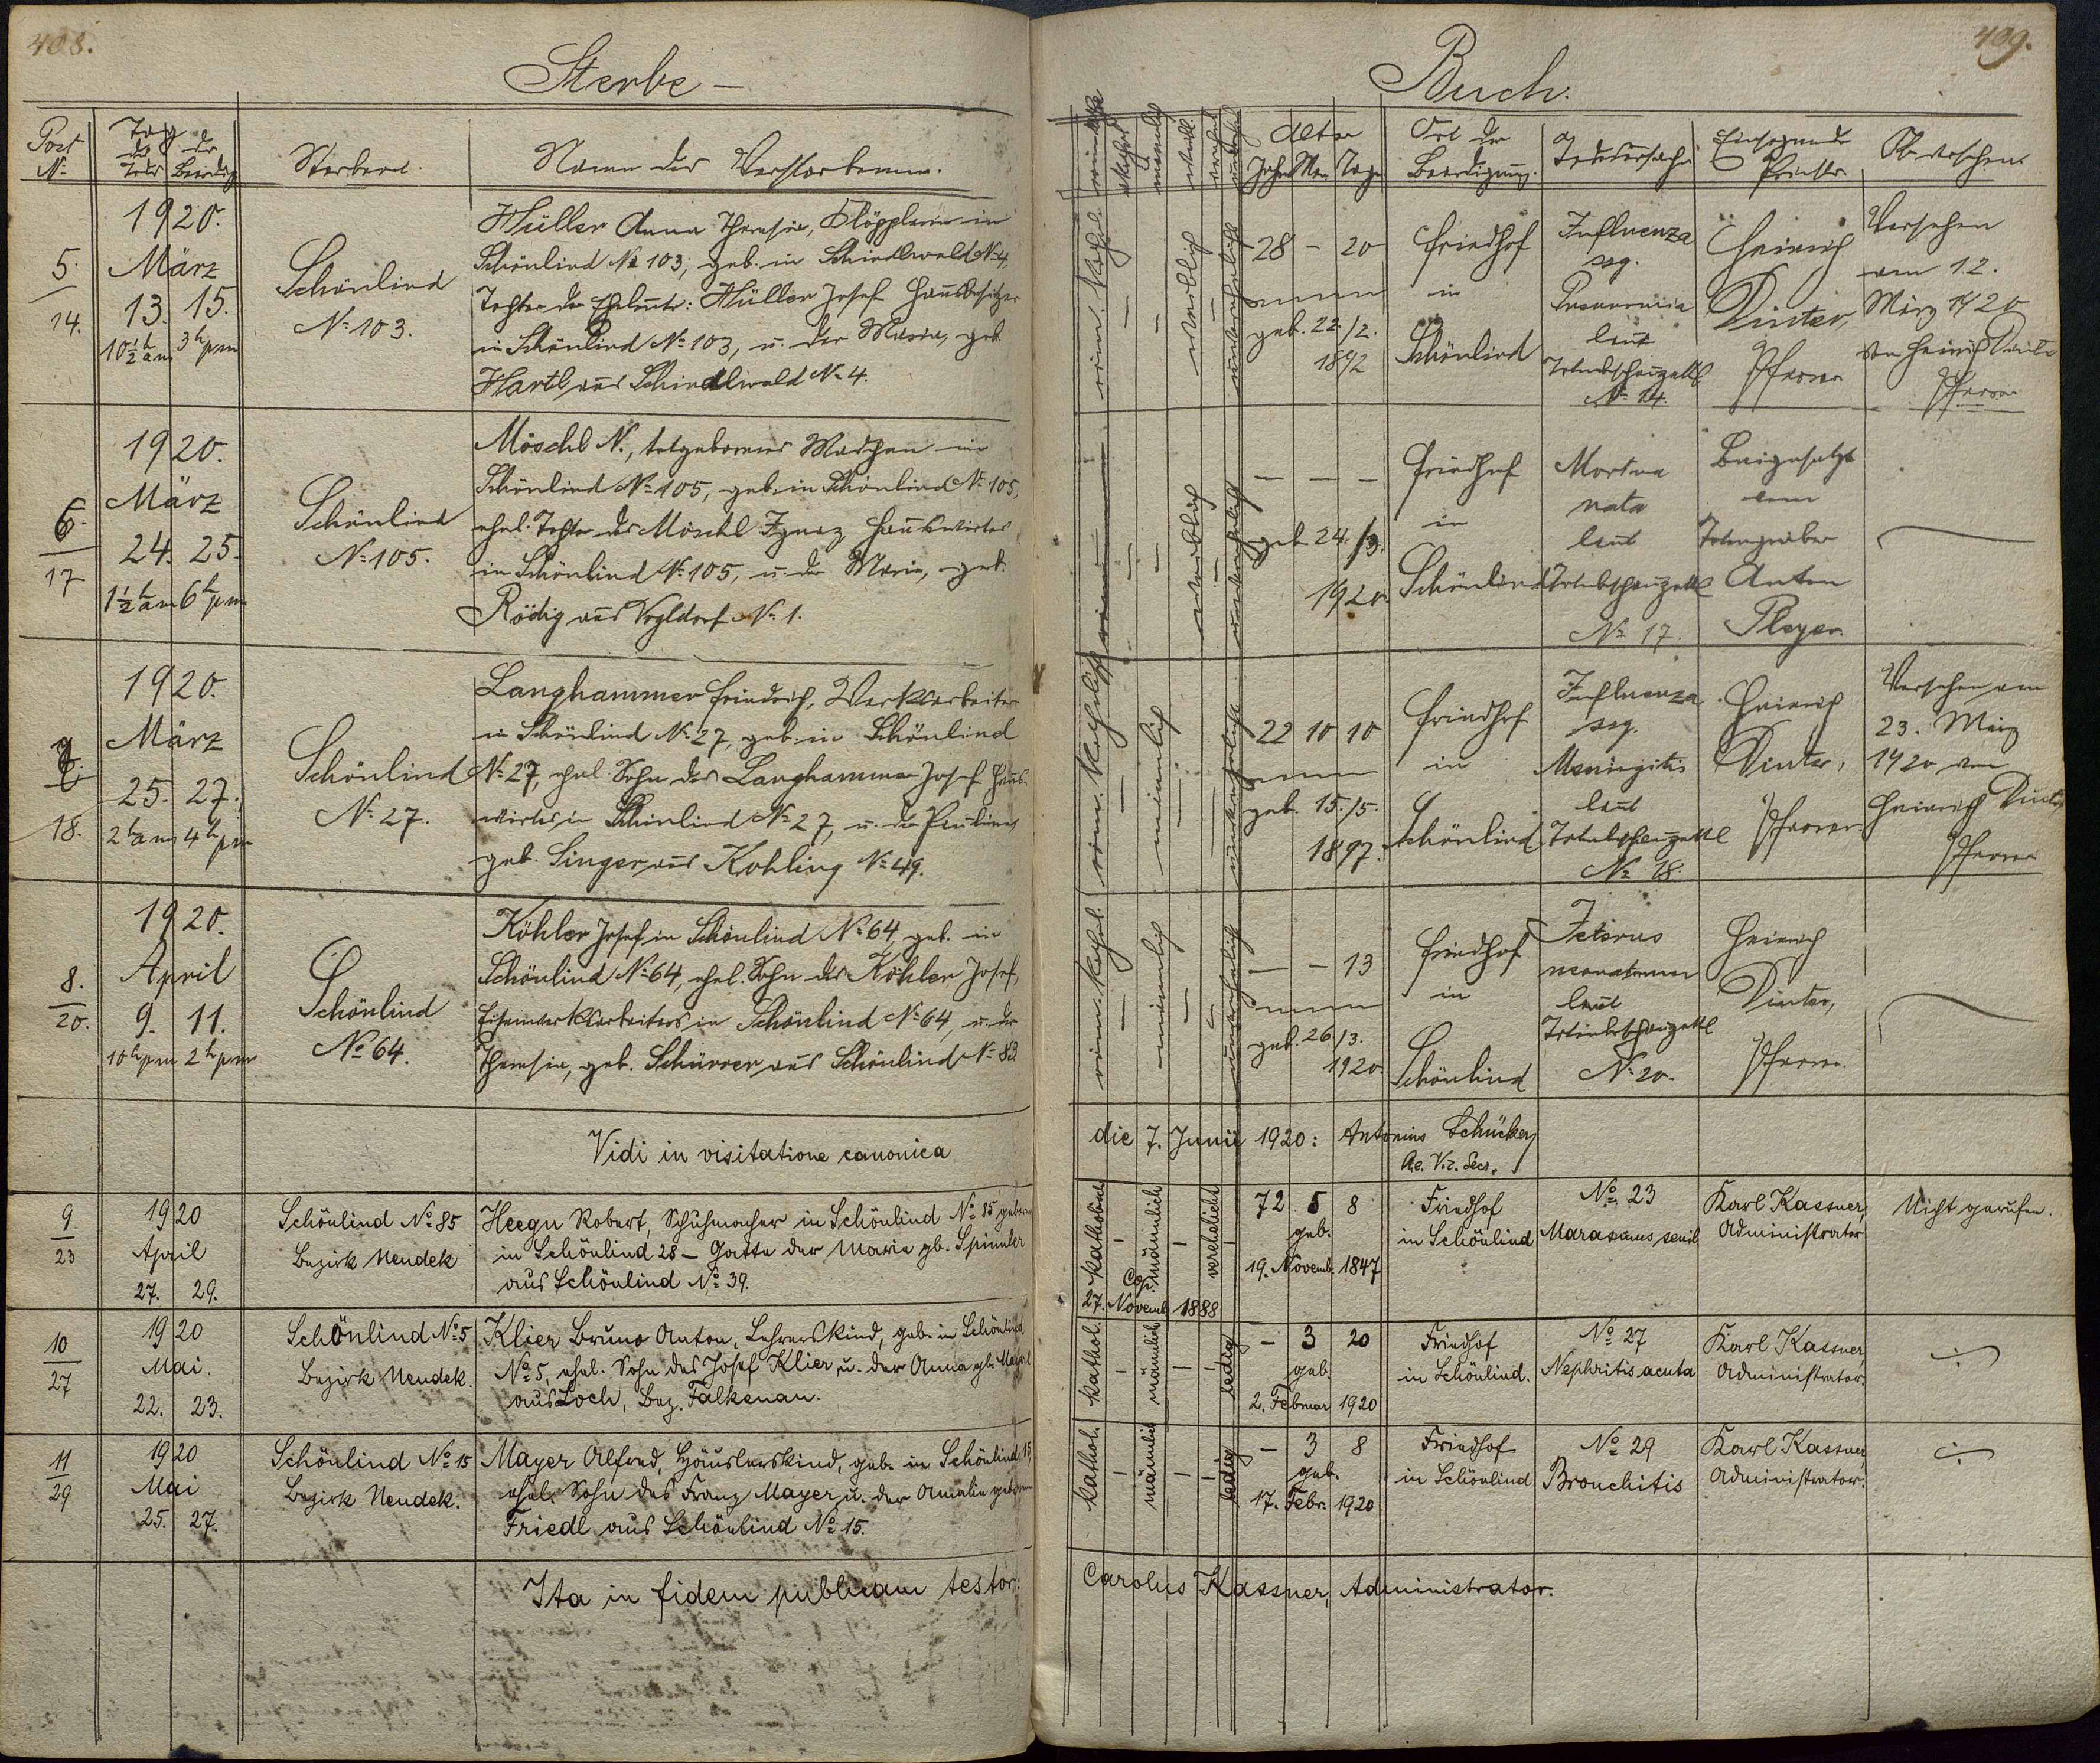 408.
Sterbe –
Post
Nº
Tag
des
Todes
der
Beerdig
Sterbeort.
Name des Verstorbenen.
1920.
5.
14.
März
13. 15.
10½ h am 3 h pm
Schönlind
Nº 103.
Müller Anna Theresia, Klöpplerin in
Schönlind Nº 103, geb. in Schindlwald Nº 4,
Tochter der Eheleute: Müller Josef Hausbesitzer
in Schönlind Nº 103, u. der Maria, geb.
Hartl aus Schindlwald Nº 4.
1920.
6.
17
März
24. 25.
1½ h am 6 h pm
Schönlind
Nº 105.
Möschl N., totgeborenes Mädchen in
Schönlind Nº 105, geb. in Schönlind Nº 105,
ehel. Tochter des Möschl Ignaz Hauswirtes
in Schönlind Nº 105, u. der Maria, geb.
Rödig aus Vogldorf Nº 1.
1920.
7.
18.
März
25. 27.
2 h am 4 h pm
Schönlind
Nº 27.
Langhammer Friedrich, Werksarbeiter
in Schönlind Nº 27, geb. in Schönlind
Nº 27, ehel. Sohn des Langhammer Josef Haus-
wirtes in Schönlind Nº 27, u. der Pauline,
geb. Singer aus Kohling Nº 49.
1920.
8.
20.
April
9. 11.
10 h pm 2 h pm
Schönlind
Nº 64.
Köhler Josef in Schönlind Nº 64, geb. in
Schönlind Nº 64, ehel. Sohn des Köhler Josef,
Eisenwerksarbeiters in Schönlind Nº 64, u. der
Theresia, geb. Schürrer aus Schönlind Nº 83.
Vidi in visitatione canonica
9
23
1920
April
27. 29.
Schönlind Nº 85
Bezirk Neudek
Heegn Robert, Schuhmacher in Schönlind Nº 85 geboren
in Schönlind 28 – Gatte der Maria gb. Spinnler
aus Schönlind Nº 39.
10
27
1920
Mai.
22. 23.
Schönlind Nº 5
Bezirk Neudek.
Klier Bruno Anton, Lehrerskind, geb. in Schönlind
Nº 5, ehel. Sohn des Josef Klier u. der Anna gb.
aus Loch, Bez. Falkenau.
11
29
1920
Mai
25. 27.
Schönlind Nº 15
Bezirk Neudek.
Mayer Alfred, Häuslerskind, geb. in Schönlind 15
ehel. Sohn des Franz Mayer u. der Amalie geboren
Friedl aus Schönlind Nº 15.
Ita in fidem publicam testor:
409.
Buch.
männlich
weibl.
Alter
Jahre Mon. Tage
Ort der
Beerdigung.
Todesursache
Einsegnender
Priester
Ob versehen
röm. kathol.
weiblich
28 – 20
geb. 22./2.
1892
Friedhof
in
Schönlind
Influenza
seq.
Pneumonia
laut
Totenbeschauzettl
Nº 14.
Heinrich
Dinter,
Pfarrer
Versehen
am 12.
März 1920
von Heinrich Dinter
Pfarrer
weiblich
– – –
geb. 24./3.
1920.
Friedhof
in
Schönlind
Mortua
nata
laut
Totenbeschauzettl
Nº 17.
Beigesetzt
vom
Totengräber
Anton
Pleyer.
röm. katholisch
männlich
22 10 10
geb. 15./5.
1897.
Friedhof
in
Schönlind
Influenza
seq.
Meningitis
laut
Totenbeschauzettl
Nº 18.
Heinrich
Dinter,
Pfarrer.
Versehen am
23. März
1920 von
Heinrich Dinter,
Pfarrer
röm. kathol.
männlich
– – 13
geb. 26./3.
1920.
Friedhof
in
Schönlind
Icterus
neonatorum
laut
Totenbeschauzettl
Nº 20.
Heinrich
Dinter,
Pfarrer.
die 7. Junii 1920: Antonius Schücker,
Ae. Vic. Secr.
katholisch
männlich
verehelicht
Cop.
27. Novemb. 1888
72 5 8
geb.
19. Novemb. 1847
Friedhof
in Schönlind
Nº 23
Marasmus senil
Karl Kassner,
Administrator
Nicht gerufen.
kathol.
männlich
ledig
– 3 20
geb.
2. Februar 1920
Friedhof
in Schönlind.
Nº 27
Nephritis acuta
Karl Kassner,
Administrator.
kathol.
männlich
ledig
– 3 8
geb.
17. Febr. 1920
Friedhof
in Schönlind
Nº 29
Bronchitis
Karl Kassner,
Administrator.
Carolus Kassner, Administrator.